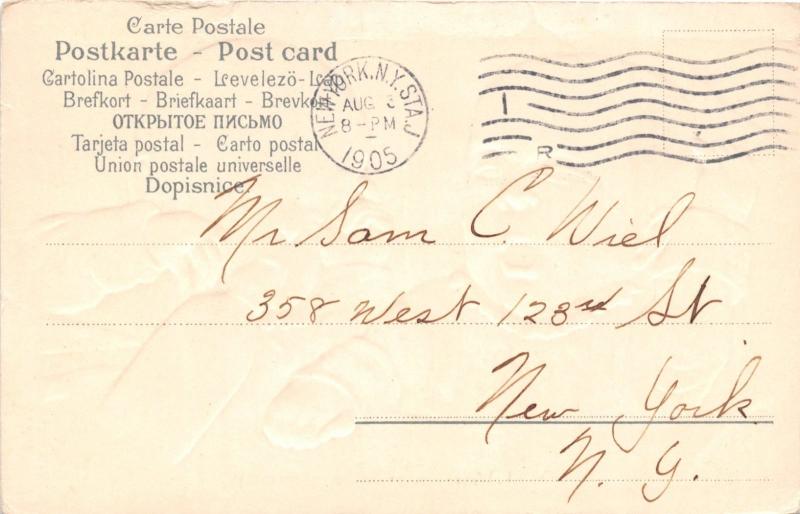 Carte Postale
Postkarte - Post card
Cartolina Postale - Levelező-
Brefkort - Briefkaart - Brevkort
ОТКРЫТОЕ ПИСЬМО
Tarjeta postal - Carto postal
Union postale universelle
Dopisnice.
NEW YORK, N.Y. STA. J
AUG 3
8-PM
1905
1
R
Mr Sam C. Wiel
358 West 123rd St
New York
N. Y.